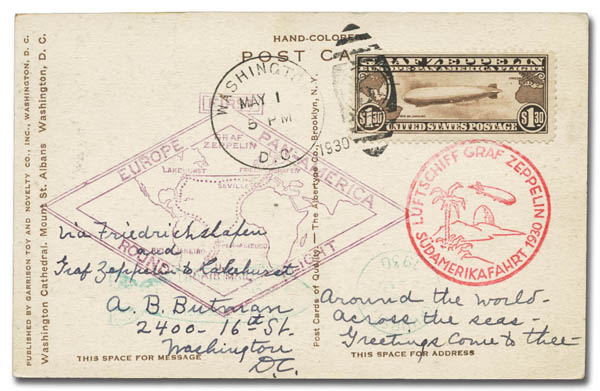 HAND-COLORED
POST CA
PUBLISHED BY GARRISON TOY AND NOVELTY CO., INC., WASHINGTON, D. C.
Washington Cathedral. Mount St. Albans Washington, D. C.
WASHINGTON
MAY 1
5 PM
1930
D.C.
GRAF ZEPPELIN
EUROPE-PAN AMERICA FLIGHT
$1.30 $1.30
UNITED STATES POSTAGE
FIRST
EUROPE PAN-AMERICA
GRAF
ZEPPELIN
LAKEHURST
SEVILLE
ROUND FLIGHT
AIR MAIL
LUFTSCHIFF GRAF ZEPPELIN
SÜDAMERIKAFAHRT 1930
Post Cards of Quality. — The Albertype Co., Brooklyn, N. Y.
1930
via Friedrichshafen
and
Graf Zeppelin to Lakehurst
A. B. Butman
2400 - 16th St.
Washington
D.C.
THIS SPACE FOR MESSAGE
Around the world -
Across the seas -
Greetings come to thee -
THIS SPACE FOR ADDRESS